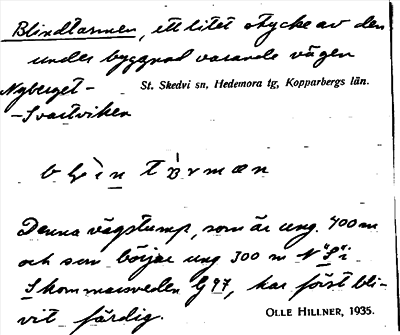 Blindtarmen, ett litet stycke av den
under byggnad varande vägen
Nyberget-
-Svartviken
St. Skedvi sn, Hedemora tg, Kopparbergs län.
Denna vägstump, som är ung. 400 m
och som börjar ung 300 m N "S" i
Skommarsveden G 97, har först bli-
vit färdig.
OLLE HILLNER, 1935.